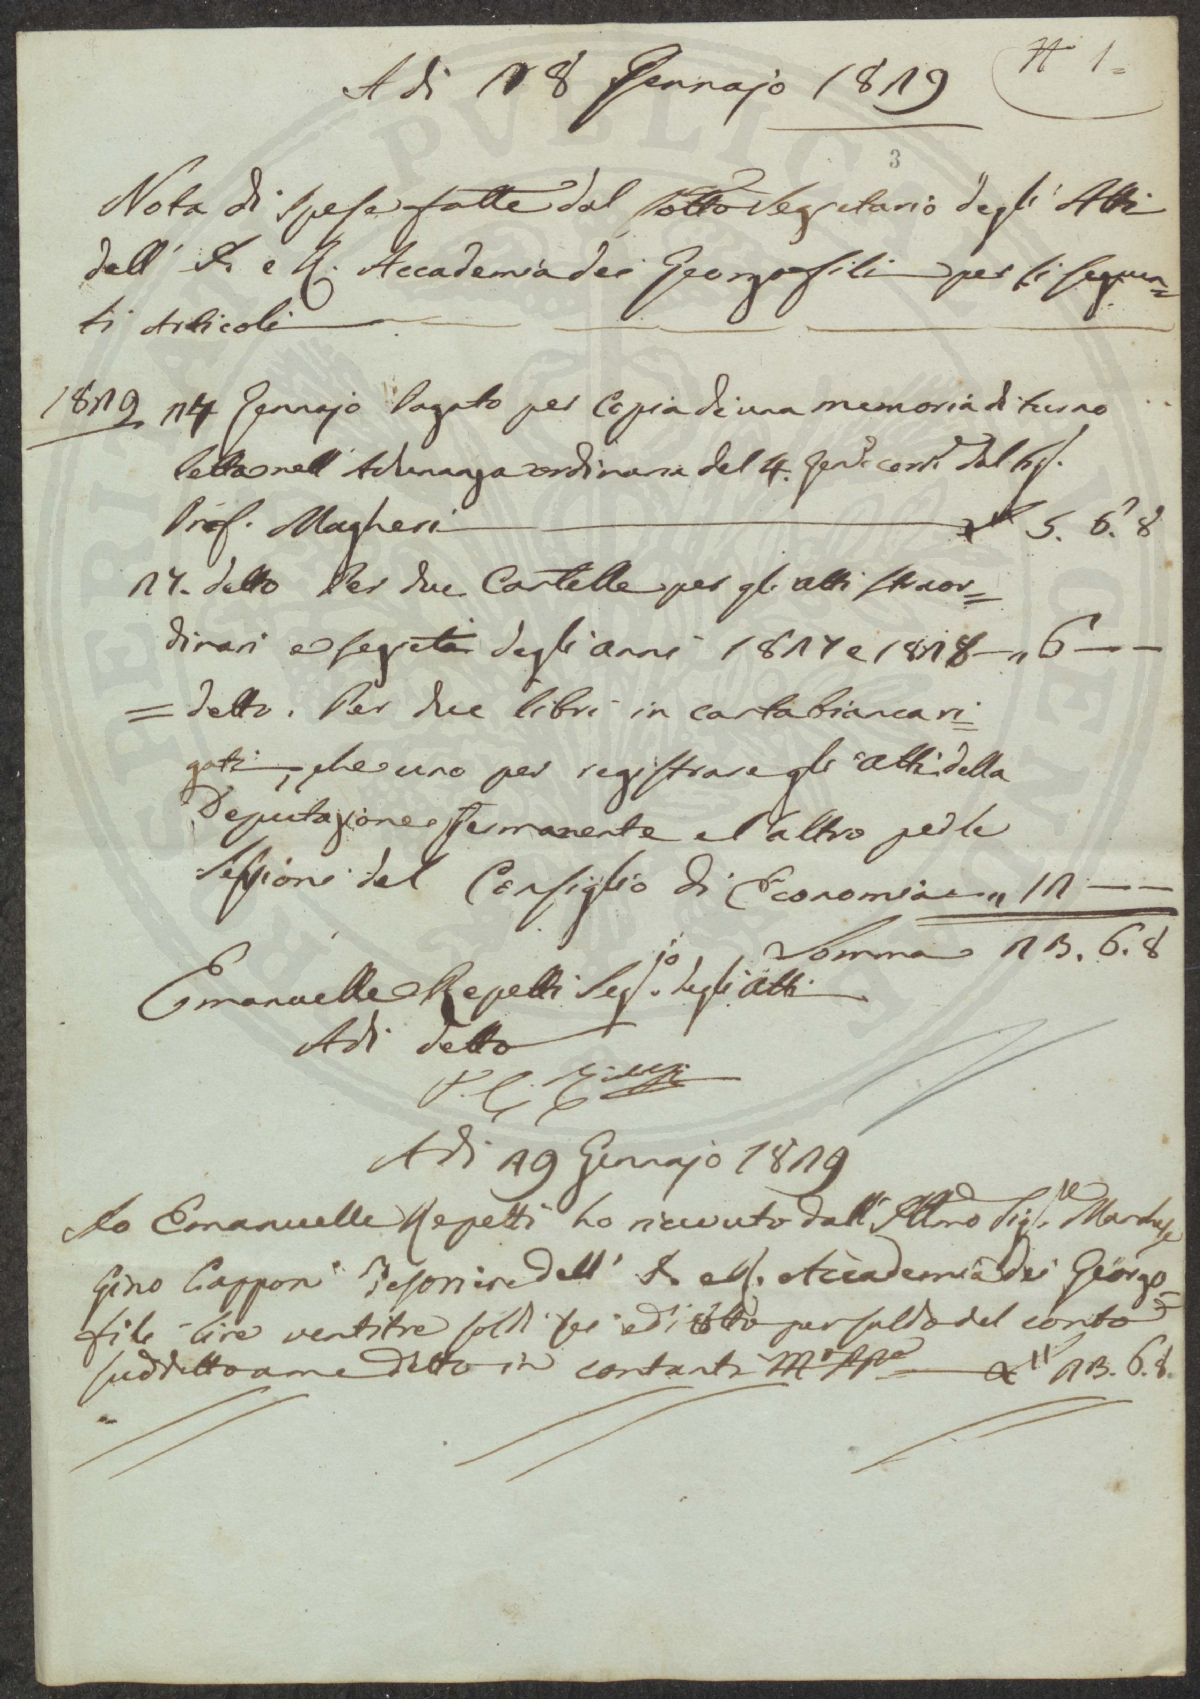 N° 1=
A dì 18 Gennajo 1819
3
Nota di Spese fatte dal Sotto Segretario degli Atti
dell' I. e R. Accademia dei Georgofili per li seguen=
ti Articoli
1819 14 Gennajo Pagato per Copia di una memoria di turno
letta nell' Adunanza ordinaria del 4. Gen.° corr.e dal Sig.
Prof. Magheri 5. 6. 8
17. detto Per due Cartelle per gli atti straor=
dinari e segreti degli anni 1817 e 1818 — „ 6 — —
= detto. Per due libri in carta bianca ri=
gati, che uno per registrare gli atti della
Deputazione permanente e l'altro per le
Sessioni del Consiglio di Economia „ 12 — —
Somma 23. 6. 8
Emanuelle Repetti Seg.io degli atti
A dì detto
A dì 19 Gennajo 1819
Io Emanuelle Repetti ho ricevuto dall' Illmo Sig.re Marchese
Gino Capponi Tesoriere dell' I. e R. Accademia dei Georgo=
fili lire ventitre soldi sei e di otto per saldo del conto
suddetto a me detto in contanti M° pp.a 23. 6. 8.